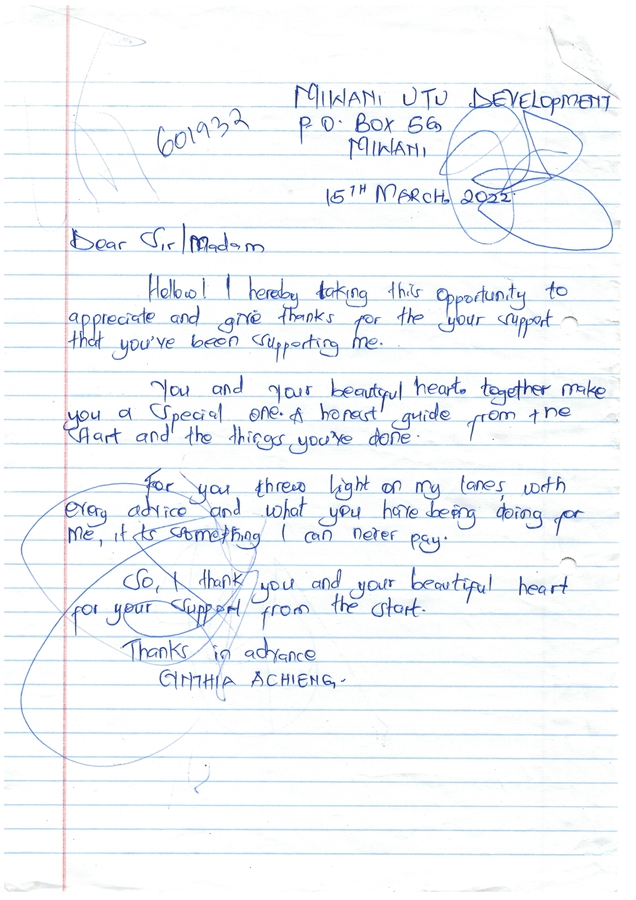 MIWANI UTU DEVELOPMENT
601932
P.O. BOX 56,
MIWANI
15TH MARCH, 2022.
Dear Sir/Madam
Hellow! I hereby taking this opportunity to
appreciate and give thanks for the your support
that you've been supporting me.
You and your beautiful heart, together make
you a special one. A honest guide from the
start and the things you've done.
For you threw light on my lanes, with
every advice and what you have being doing for
me, it is something I can never pay.
So, I thank you and your beautiful heart
for your support from the start.
Thanks in advance
CYNTHIA ACHIENG.